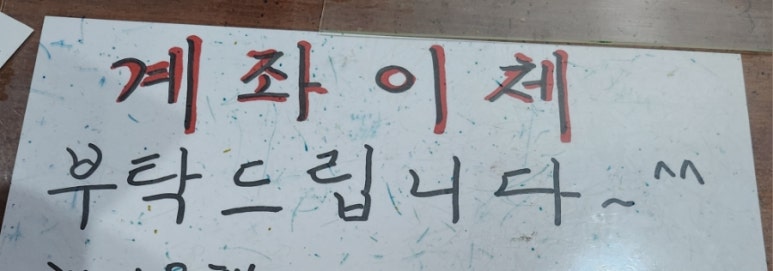 계좌이체
부탁드립니다~^^